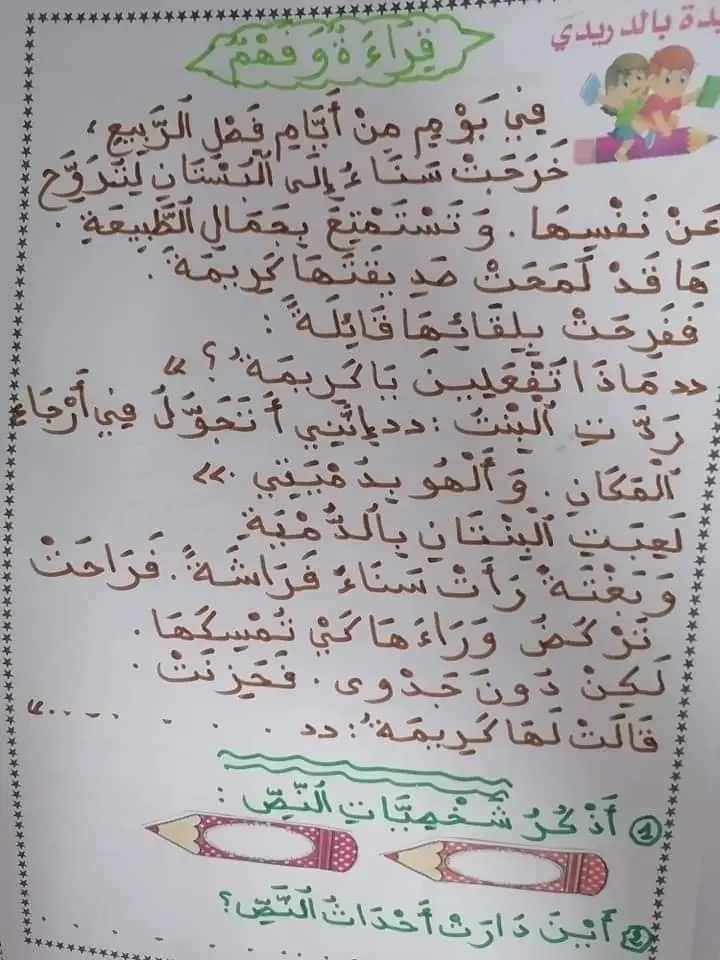 يدة بالدريدي
قِرَاءَةٌ وَ فَهْمٌ
فِي يَوْمٍ مِنْ أَيَّامِ فَصْلِ الرَّبِيعِ ،
خَرَجَتْ سَنَاءُ إِلَى الْبُسْتَانِ لِتُرَوِّحَ
عَنْ نَفْسِهَا . وَ تَسْتَمْتِعَ بِجَمَالِ الطَّبِيعَةِ .
هَا قَدْ لَمَحَتْ صَدِيقَتَهَا كَرِيمَةَ .
فَفَرِحَتْ بِلِقَائِهَا قَائِلَةً :
«مَاذَا تَفْعَلِينَ يَا كَرِيمَةُ ؟ »
رَدَّتِ الْبِنْتُ : «إِنَّنِي أَتَجَوَّلُ فِي أَرْجَاءِ
الْمَكَانِ . وَ أَلْهُو بِدُمْيَتِي . »
لَعِبَتِ الْبِنْتَانِ بِالدُّمْيَةِ
وَ بَغْتَةً رَأَتْ سَنَاءُ فَرَاشَةً . فَرَاحَتْ
تَرْكُضُ وَرَاءَهَا كَيْ تُمْسِكَهَا .
لَكِنْ دُونَ جَدْوَى . فَحَزِنَتْ .
قَالَتْ لَهَا كَرِيمَةُ : « . . . . . . . . . »
1 أَذْكُرُ شَخْصِيَّاتِ النَّصِّ :
2 أَيْنَ دَارَتْ أَحْدَاثُ النَّصِّ ؟
. . . . . . . . . . . .